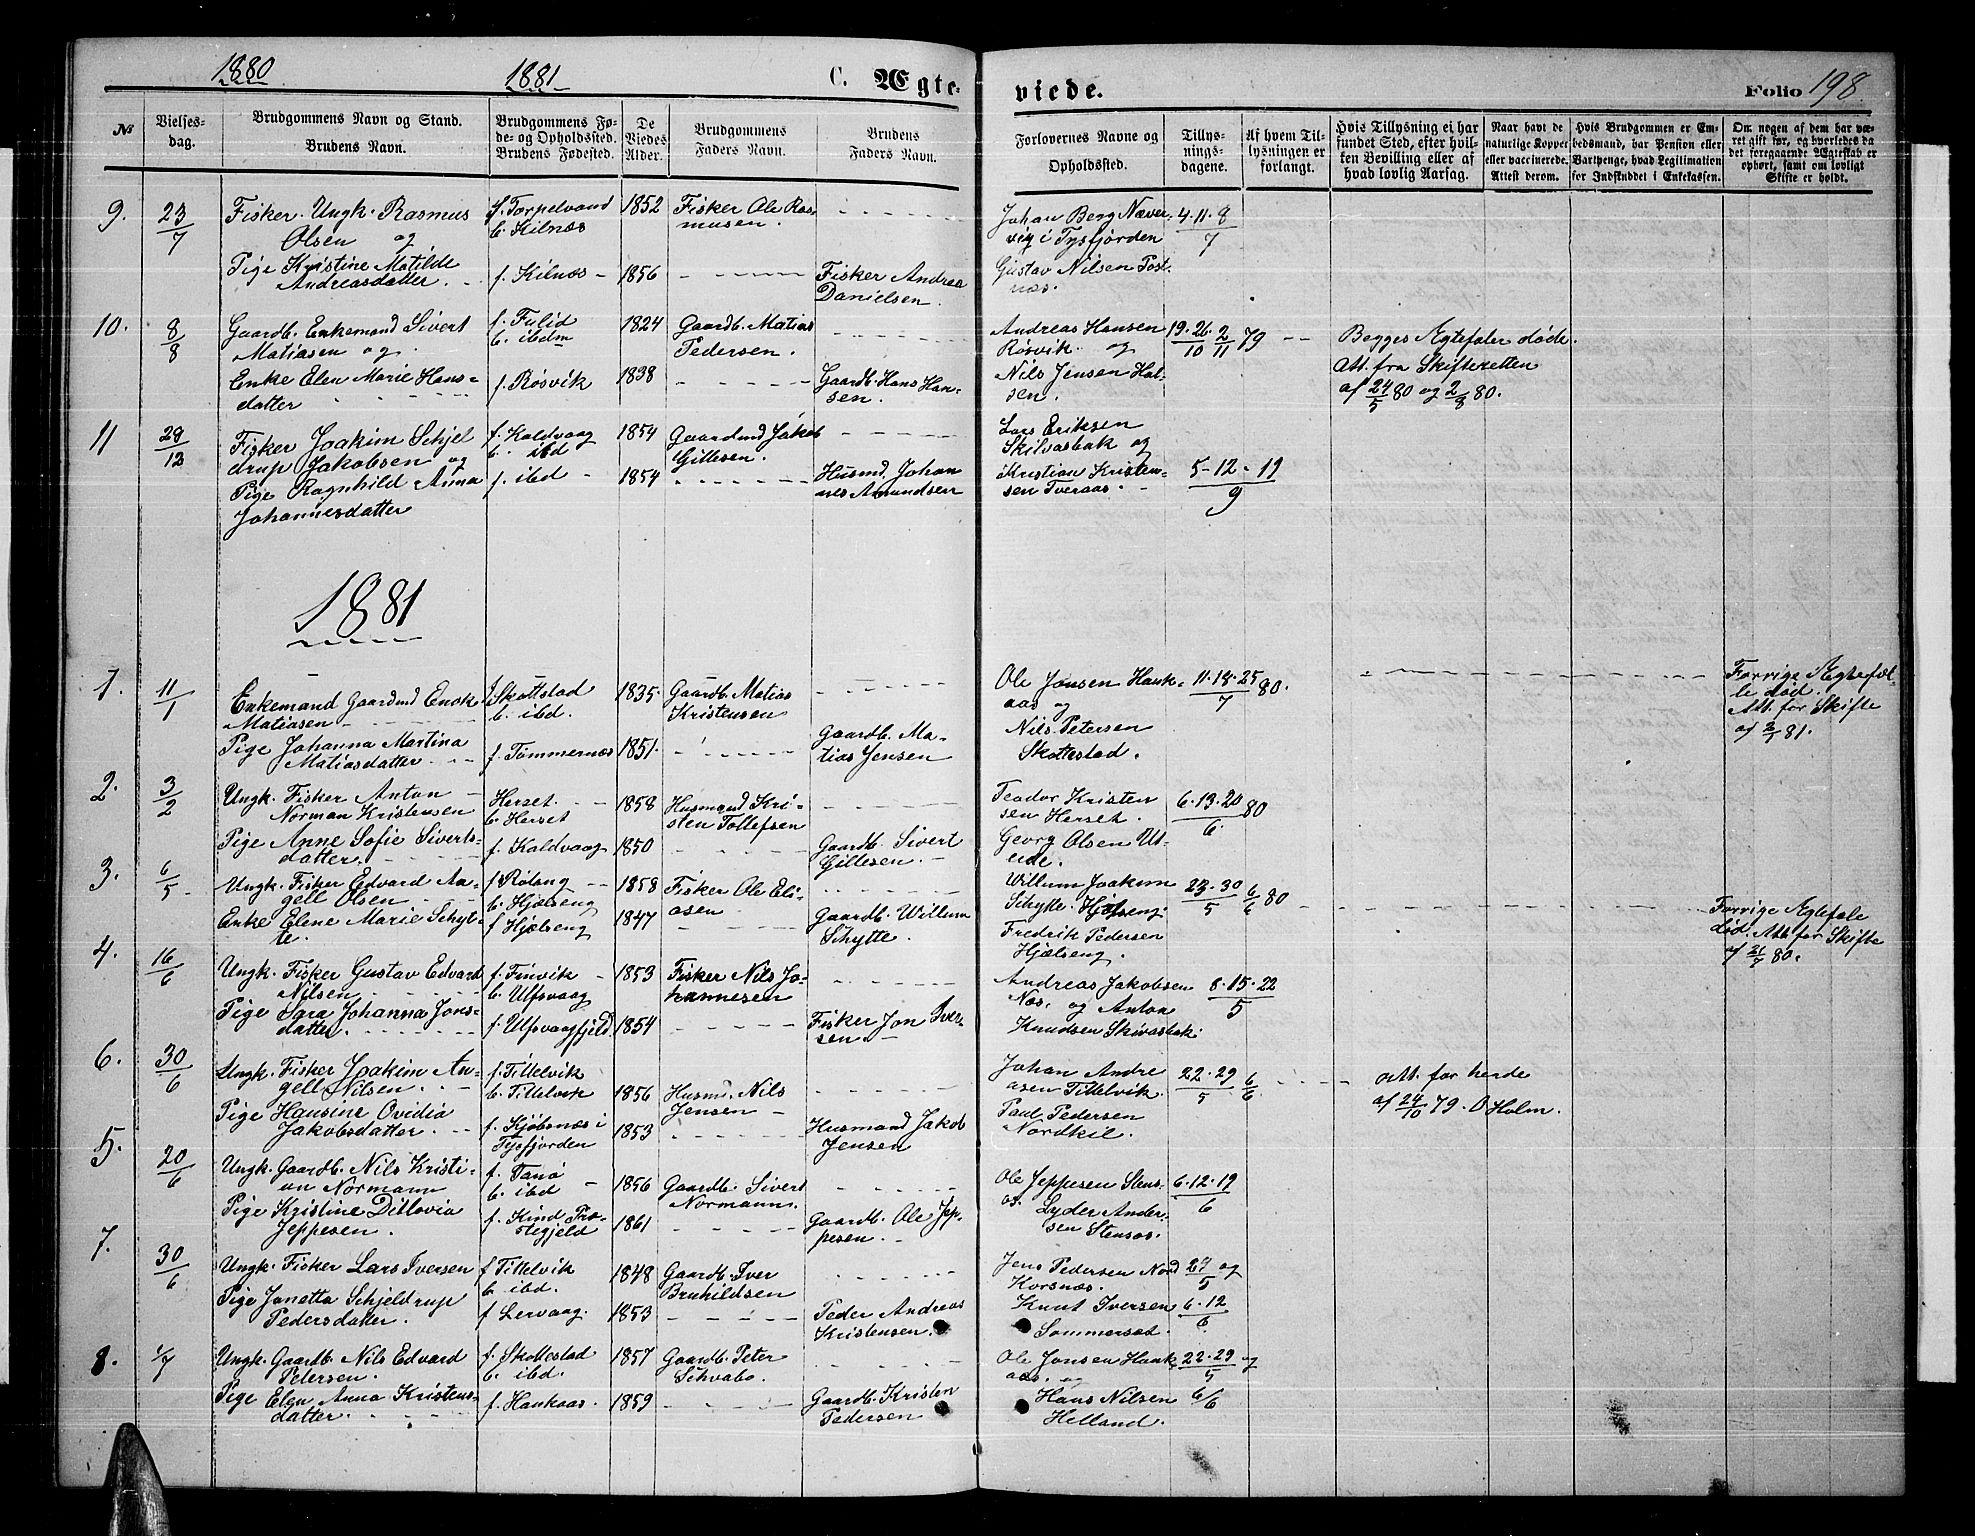 1880
1881
C. Ægte-
viede.
Folio 198
№
Vielses-
dag.
Brudgommens Navn og Stand.
Brudens Navn.
Brudgommens Fø-
de- og Opholdssted.
Brudens Fødested.
De
Viedes
Alder.
Brudgommens
Faders Navn.
Brudens
Faders Navn.
Forlovernes Navne og
Opholdssted.
Tillys-
nings-
dagene.
Af hvem Til-
lysningen er
forlangt.
Hvis Tillysning ei har
fundet Sted, efter hvil-
ken Bevilling eller af
hvad lovlig Aarsag.
Naar havt de
naturlige Kopper
eller vaccinerede.
Attest derom.
Hvis Brudgommen er Em-
bedsmand, har Pension eller
Vartpenge, hvad Legitimation
for Indskuddet i Enkekassen.
Om nogen af dem har væ-
ret gift før, og hvorledes da
det foregaaende Ægteskab er
ophørt, samt om lovligt
Skifte er holdt.
9. 23/7 Fisker Ungk. Rasmus f. Torpelvand 1852 Fisker Ole Ras- Johan Berg Næver- 4. 11. 8/7
Olsen og b. Kilnæs musen. vig i Tysfjorden
Pige Kristine Matilde f. Kilnæs 1856 Fisker Andrea Gustav Nilsen Post-
Andreasdatter. Danielsen. næs.
10. 8/8 Gaardb. Enkemand Sivert f. Fulid 1824 Gaardb. Matias Andreas Hansen 19. 26/10 2/11 79 Begges Ægtefæler døde.
Matiasen og b. ibdm Pedersen. Røsvik og Att. fra Skifteretten
Enke Elen Marie Hans- f. Røsvik 1838 Gaardb. Hans Han- Nils Jensen Hal- af 24/5 80 og 2/8 80.
datter sen. sen.
11 29/12 Fisker Joakim Schjel f. Kaldvaag 1854 Gaardmd Jakob Lars Eriksen
drup Jakobsen og b. ibd Gillesen. Skilvasbak og
Pige Ragnhild Anna f. ibd 1854 Husmd. Johan Kristian Kristen- 5-12-19/9
Johannesdatter nes Amundsen sen Tveraas.
1881
1. 11/1 Enkemand Gaardmd Enok f. Skottstad 1835 Gaardb. Matias Ole Jonsen Hauk- 11. 18. 25/7 80. Forrige Ægtefæl-
Matiasen b. ibd. Kristensen aas og le død.
Pige Johanna Martina f. Tømmernæs 1851 Gaardb. Ma- Nils Petersen Att. for Skifte
Matiasdatter tias Jensen Skottestad. af 2/1 81.
2. 3/2 Ungk. Fisker Anton Herset. 1858 Husmand Kri- Teodor Kristen 6. 13. 20/6 80
Norman Kristensen b. Herset sten Tollefsen sen Herset.
Pige Anne Sofie Siverts- f. Kaldvaag 1850 Gaardb. Sivert Georg Olsen Ut-
datter. Gillesen.
3. 6/5 Ungk. Fisker Edvard An- f. Rotang 1858 Fisker Ole Eli- Willum Joakim 23. 30/5 6/6 80 Forrige Ægtefæle
gell Olsen b. Hjelseng asen Schytte. Hjelseng død. Att. for Skifte
Enke Elene Marie Schyt- f. Hjelseng 1847 Gaardb. Willum Fredrik Pedersen af 21/7 80.
te. Schytte. Hjelseng.
4. 16/6 Ungk. Fisker Gustav Edvard f. Finvik 1853 Fisker Nils Jo- Andreas Jakobsen 8. 15. 22/5
Nilsen b. Ulfsvaag hannesen Næs, og Anton
Pige Sara Johanna Jons- f. Ulfsvaagfjeld 1854 Fisker Jon Iver- Knudsen Skovasbak.
datter sen.
6. 30/6 Ungk. Fisker Joakim An- f. Tittelvik Johan Andre 22. 29/5 6/6 Att. for herde
gell Nilsen. b. Tittelvik 1856 Husm. Nils Jensen asen Tittelvik. af 24/10 79. O Holm.
Pige Hansine Ovidia f. Kjøbsnæs i 1853 Husmand Jakob Paul Pedersen
Jakobsdatter. Tysfjorden Jensen Nordkil.
5. 20/6 Ungk. Gaardb. Nils Kristi- f. Tanø 1856 Gaardb. Sivert Ole Jeppesen Stens- 6. 12. 19/6
an Normann b. ibd Normann. as.
Pige Kristine Ditlovia f. Kind Præ- 1861 Gaardb. Ole Jep- Lyder Ander-
Jeppesen. stegjeld pesen. sen Stensas.
7. 30/6 Ungk. Fisker Lars Iversen f. Tittelvik 1848 Gaardb. Iver Jens Pedersen Nord 27/5 og
b. ibd. Bruhildsen Korsnæs.
Pige Janetta Schjeldrup f. Lervaag. 1853 Peder Andreas Knut Iversen 6. 12/6.
Pedersdatter. Kristensen. Sommerset.
8. 1/7 Ungk. Gaardb. Nils Edvard f. Skottestad 1857 Gaardb. Peter Ole Jonsen Hauk 22. 29/5 og
Petersen. b. ibd. Schvabo. aas. og
Pige Elen Anna Kristens- f. Haukaas. 1859 Gaardb. Kristen Hans Nilsen 6/6
datter. Pedersen Helland.